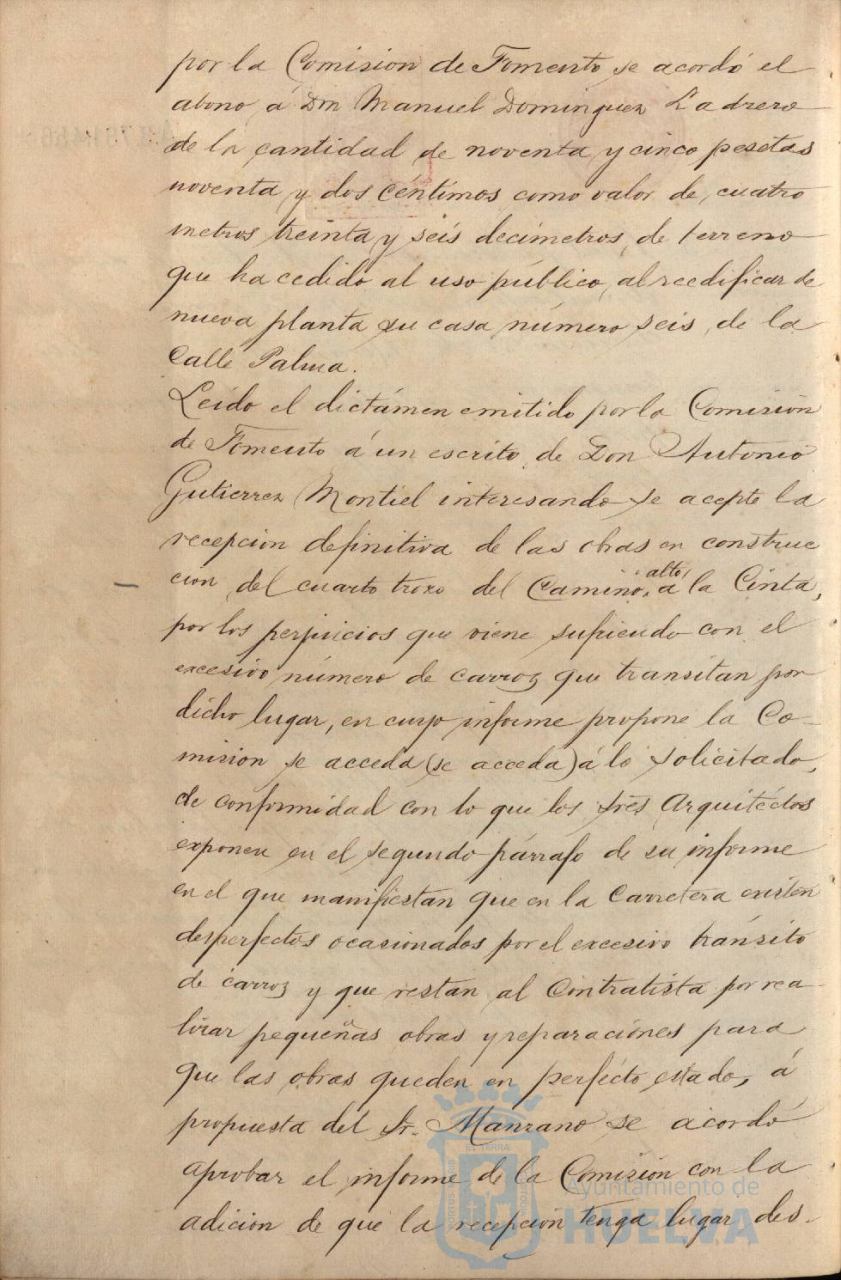 por la Comision de Fomento, se acordó el
abono, á Don Manuel Dominguez Ladrero
de la cantidad de noventa y cinco pesetas
noventa y dos céntimos como valor de, cuatro
metros treinta y seis decímetros, de terreno
que ha cedido al uso público, al reedificar de
nueva planta su casa número seis, de la
Calle Palma.
Leído el dictámen emitido por la Comisión
de Fomento á un escrito, de Don Antonio
Gutierrez Montiel interesando se acepte la
recepción definitiva de las obras en construc
cion, del cuarto trozo del Camino, alto, á la Cinta,
por los perjuicios que viene sufriendo con el
excesivo número de carros que transitan por
dicho lugar, en cuyo informe propone la Co-
mision se acceda (se acceda) á lo solicitado,
de conformidad con lo que los Sres Arquitéctos
exponen en el segundo párrafo de su informe
en el que manifiestan que en la Carretera existen
desperfectos ocasionados por el excesivo tránsito
de carros y que restan al Contratista por rea-
lizar pequeñas obras y reparaciones para
que las obras queden en perfécto, estado, á
propuesta del Sr. Manzano se acordó
aprobar el informe de la Comisión con la
adición de que la recepción tenga lugar des-
Ayuntamiento de
HUELVA